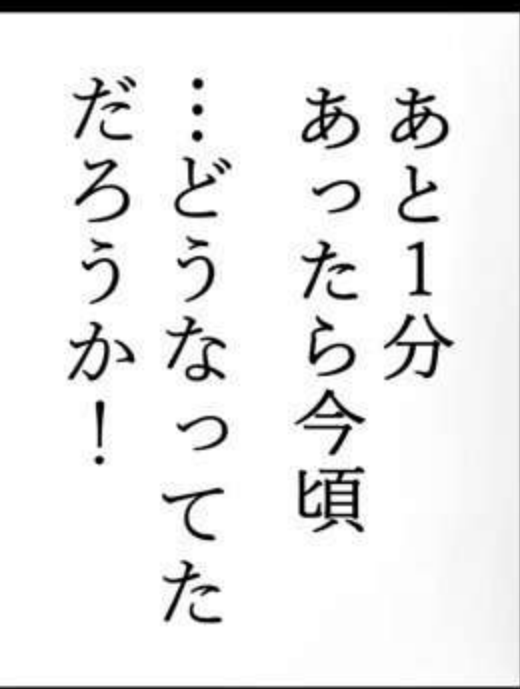 あと1分
あったら今頃
…どうなってた
だろうか！